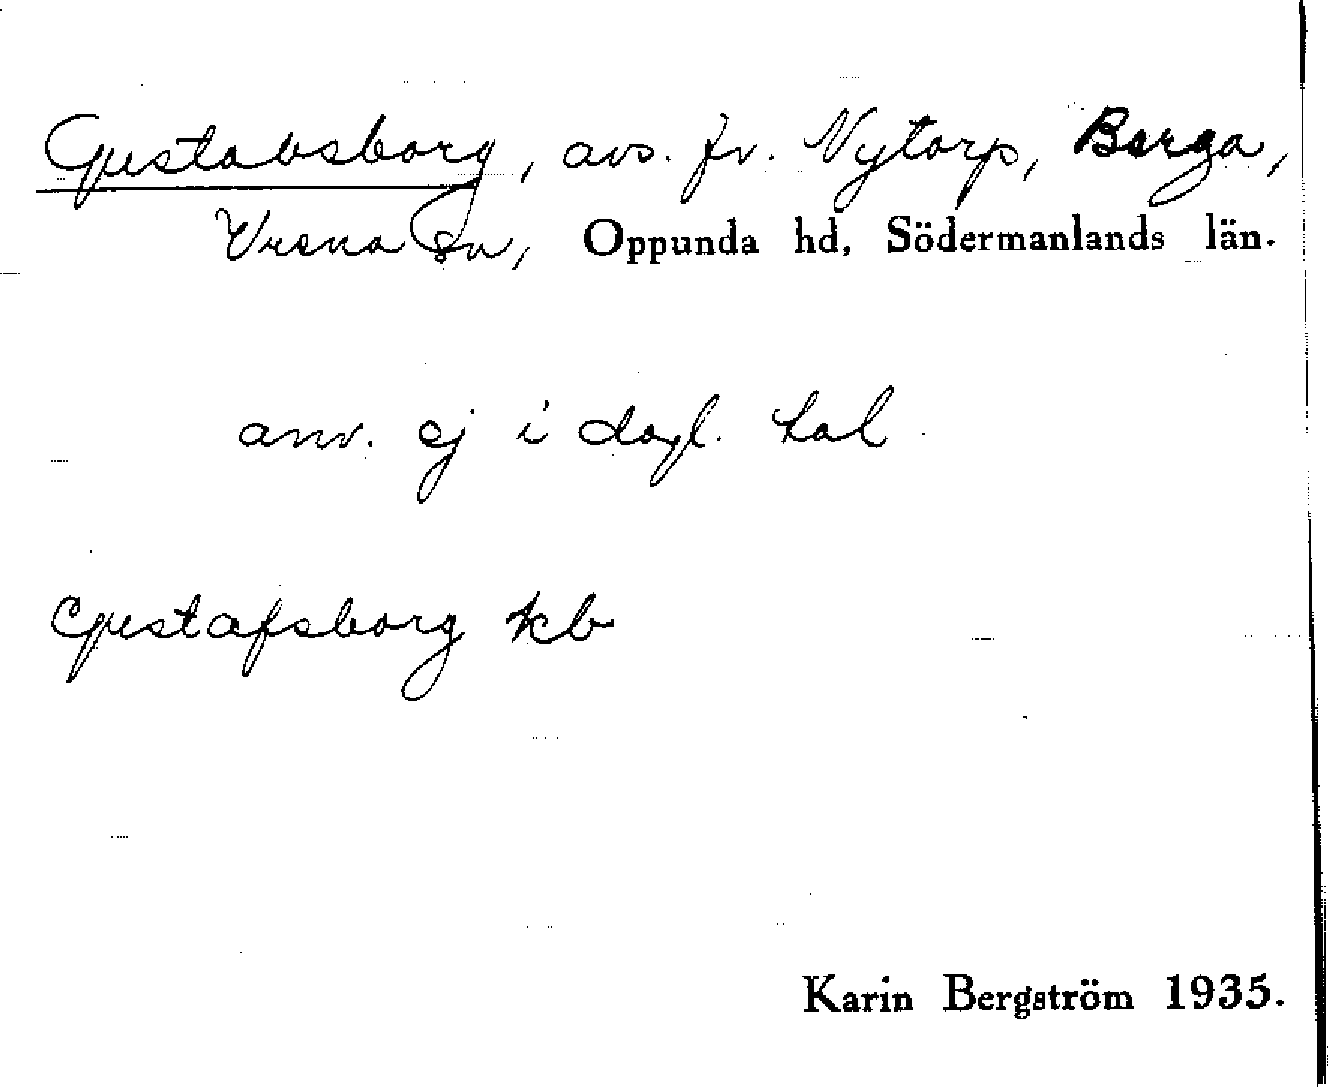 Gustavsborg, avs. fr. Nytorp, Berga,
Vrena sn, Oppunda hd, Södermanlands län.
anv. ej i dagl. tal.
Gustafsborg kb
Karin Bergström 1935.